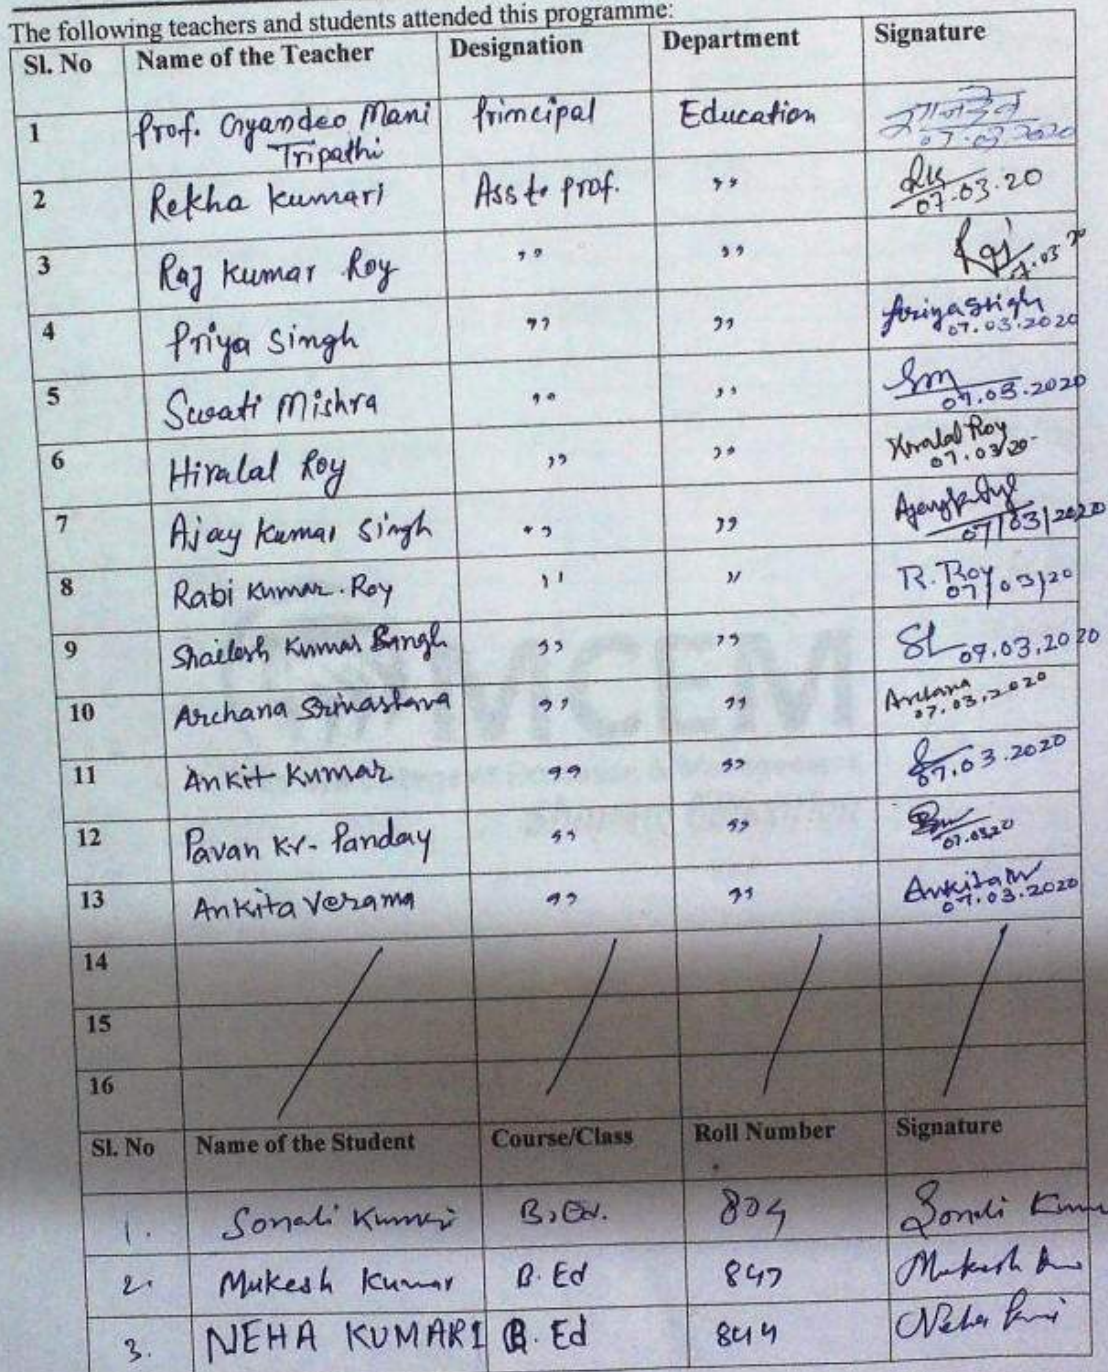 The following teachers and students attended this programme:
Sl. No Name of the Teacher Designation Department Signature
1 Prof. Gyandeo Mani Tripathi Principal Education ज्ञानदेव 07.03.2020
2 Rekha Kumari Asst. Prof. ,, 07.03.20
3 Raj Kumar Roy ,, ,, Raj
4 Priya Singh ,, ,, Priya Singh 07.03.2020
5 Swati Mishra ,, ,, Sm 07.03.2020
6 Hiralal Roy ,, ,, Hiralal Roy 07.03.20
7 Ajay Kumar Singh ,, ,, 07/03/2020
8 Rabi Kumar Roy ,, ,, R. Roy 07/03/20
9 Shailesh Kumar Singh ,, ,, 07.03.2020
10 Archana Srivastava ,, ,, Archana 07.03.2020
11 Ankit Kumar ,, ,, 07.03.2020
12 Pavan Kr- Panday ,, ,, 07.0320
13 Ankita Verama ,, ,, Ankita 07.03.2020
14
15
16
Sl. No Name of the Student Course/Class Roll Number Signature
1. Sonali Kumari B.Ed. 804 Sonali
2. Mukesh Kumar B.Ed 847 Mukesh
3. NEHA KUMARI B.Ed 844 Neha
MCEM